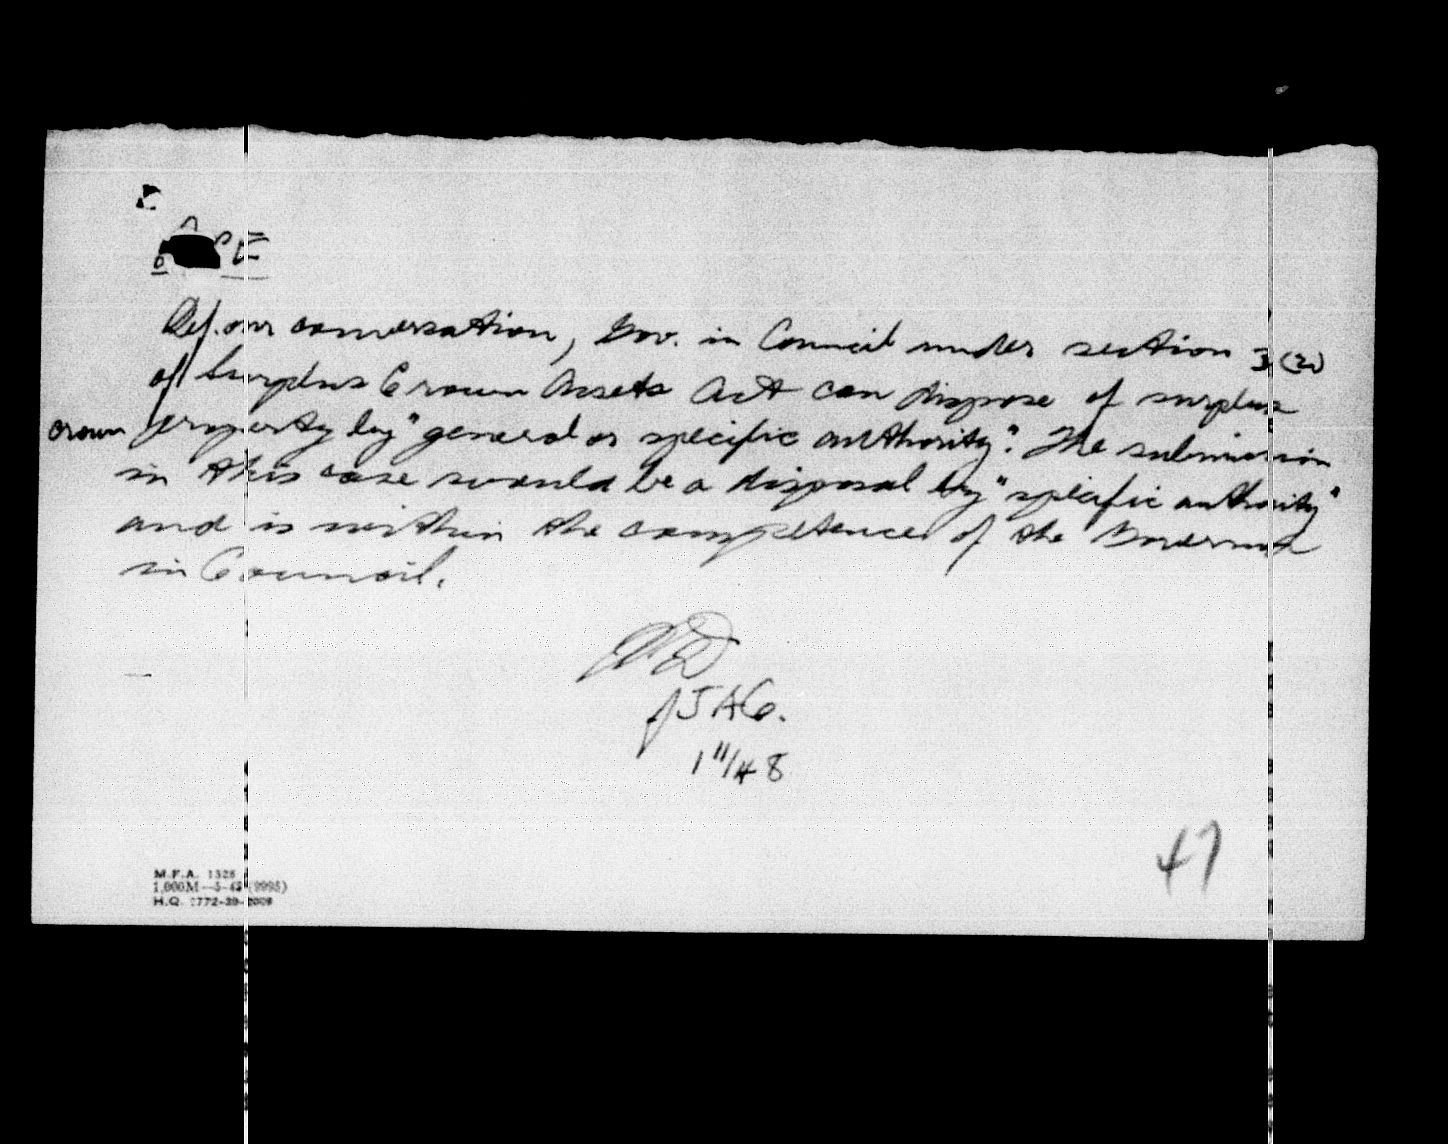 Ref. our conversation, Gov. in Council under section 3(2)
of Surplus Crown Assets Act can dispose of surplus
crown property by "general or specific authority". The submission
in this case would be a disposal by "specific authority"
and is within the competence of the Governor
in Council.
JAG.
1 11/48
47
M.F.A. 1326
1,000M—5-43 (9995)
H.Q. 1772-39-2009